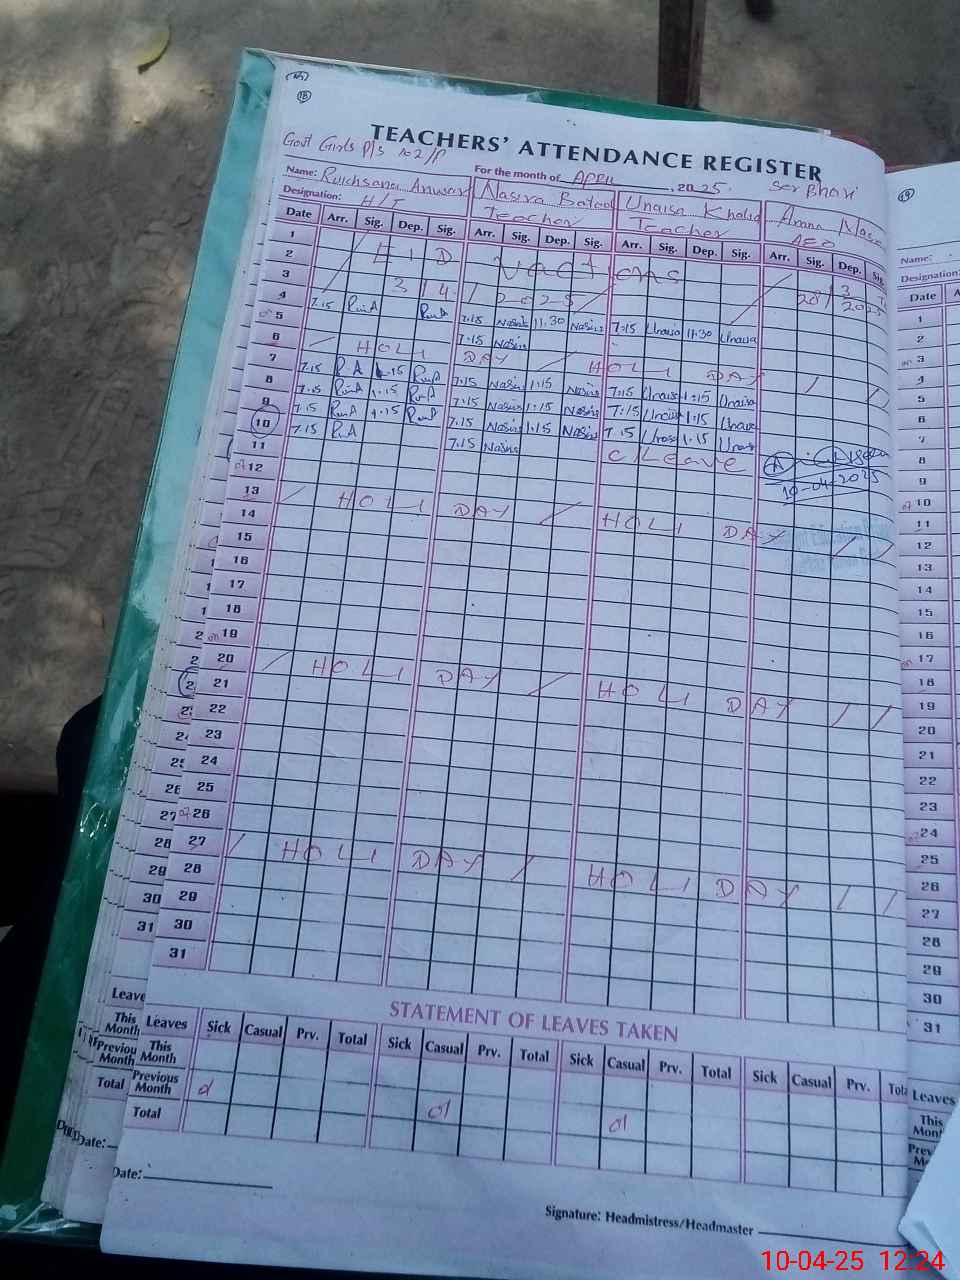 18
TEACHERS' ATTENDANCE REGISTER
Govt Girls P/S no 2/P
For the month of APRIL, 2025.
Name: Rukhsana Anwar
Nasira Batool
Unaisa Khalid
Designation: H/T
Teacher
Teacher
AEO
Date Arr. Sig. Dep. Sig. Arr. Sig. Dep. Sig. Arr. Sig. Dep. Sig. Arr. Sig. Dep.
1
2 EID Vactions
3 3/4/2025 28/3/2025
4 7.15 RuA RuA 7:15 Nasira 11.30 Nasira 7:15 Unaisa 11:30 Unaisa
5 7:15 Nasira
6 / HOLI DAY / HOLI DAY / /
7 7.15 RuA 1.15 RuA 7:15 Nasira 1:15 Nasira 7:15 Unaisa 1:15 Unaisa
8 7.15 RuA 1.15 RuA 7:15 Nasira 1:15 Nasira 7:15 Unaisa 1:15 Unaisa
9 7.15 RuA 1.15 RuA 7.15 Nasira 1.15 Nasira 7.15 Unaisa 1.15 Unaisa
10 7.15 RuA 7.15 Nasira C Leave
10-04-2025
11
12
13 / HOLI DAY / HOLI DAY / /
14
15
16
17
18
19
20 / HOLI DAY / HOLI DAY / /
21
22
23
24
25
26
27 / HOLI DAY / HOLI DAY / /
28
29
30
31
STATEMENT OF LEAVES TAKEN
Leaves Sick Casual Prv. Total Sick Casual Prv. Total Sick Casual Prv. Total Sick Casual Prv.
This Month
Previous Month
Total 01 01
Date:
Signature: Headmistress/Headmaster
19
Name:
Designation:
Date
1
2
3
4
5
6
7
8
9
10
11
12
13
14
15
16
17
18
19
20
21
22
23
24
25
26
27
28
29
30
31
Leaves
This
10-04-25 12:24